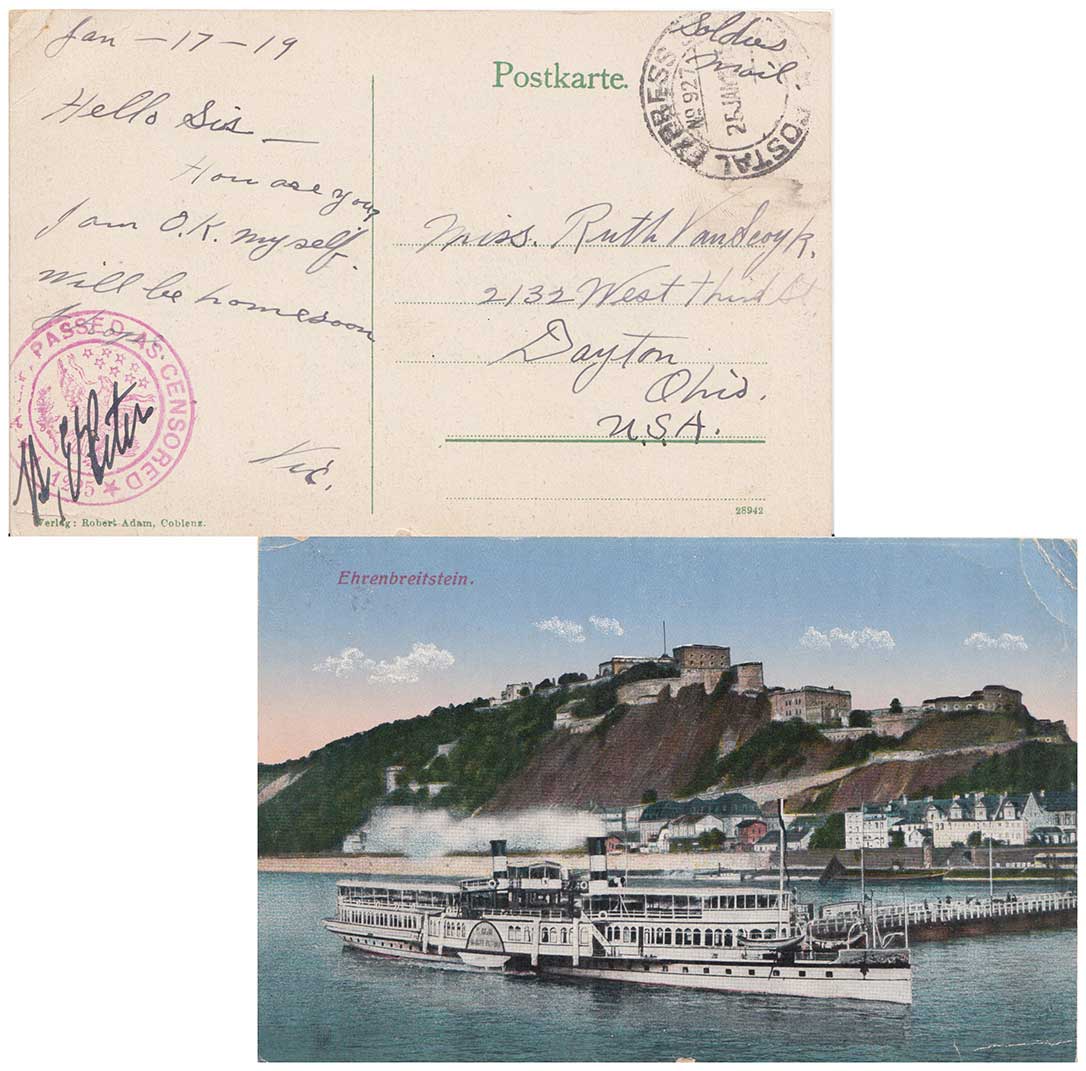 Jan - 17 - 19
Hello Sis —
How are you,
I am O.K. myself.
Will be home soon
I hope
Vic.
PASSED AS CENSORED
1295
Verlag: Robert Adam, Coblenz.
Postkarte.
Soldiers
mail
POSTAL EXPRESS
No 927
25 JAN
Miss. Ruth VanScoyk,
2132 West Third St
Dayton
Ohio.
U.S.A.
28942
Ehrenbreitstein.